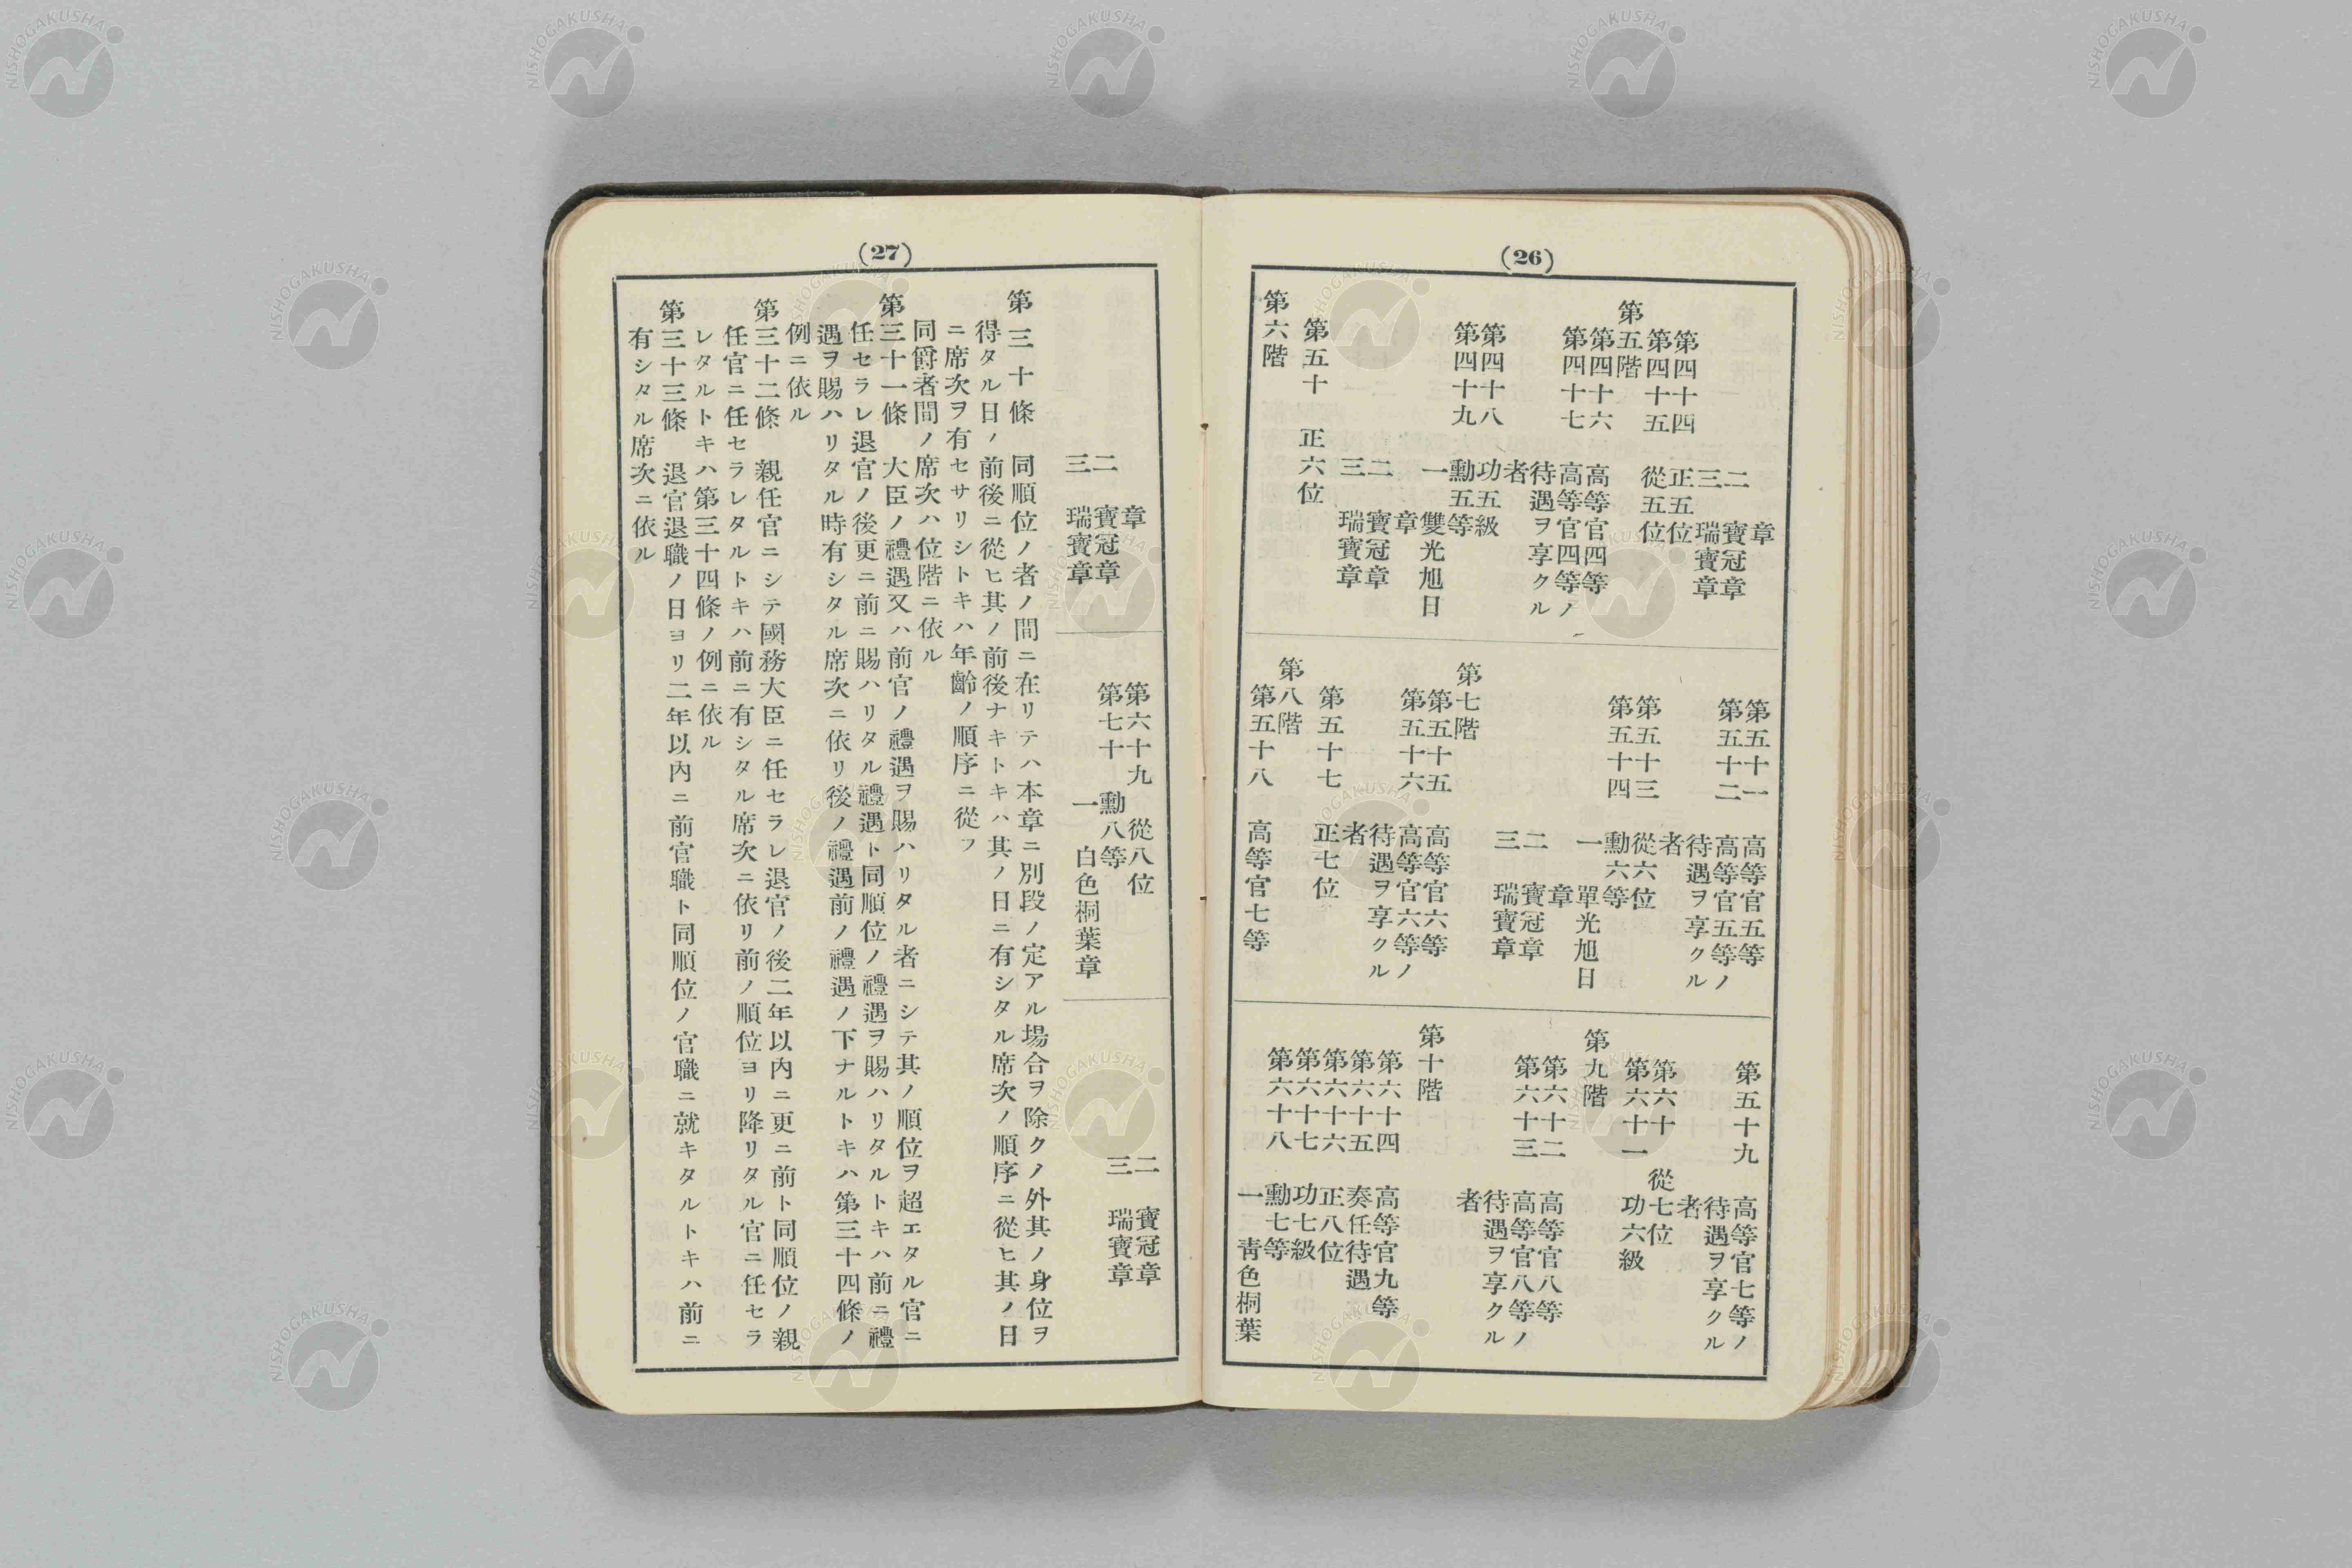 (26)
章
二 寶冠章
三 瑞寶章
第四十四 正五位
第四十五 從五位
第五階
第四十六 高等官四等
第四十七 高等官四等ノ
待遇ヲ享クル
者
第四十八 功五級
第四十九 勳五等
一 雙光旭日
章
二 寶冠章
三 瑞寶章
第五十 正六位
第六階
第五十一 高等官五等
第五十二 高等官五等ノ
待遇ヲ享クル
者
第五十三 從六位
第五十四 勳六等
一 單光旭日
章
二 寶冠章
三 瑞寶章
第七階
第五十五 高等官六等
第五十六 高等官六等ノ
待遇ヲ享クル
者
第五十七 正七位
第八階
第五十八 高等官七等
第五十九 高等官七等ノ
待遇ヲ享クル
者
第六十 從七位
第六十一 功六級
第九階
第六十二 高等官八等
第六十三 高等官八等ノ
待遇ヲ享クル
者
第十階
第六十四 高等官九等
第六十五 奏任待遇
第六十六 正八位
第六十七 功七級
第六十八 勳七等
一 靑色桐葉
(27)
章
二 寶冠章
三 瑞寶章
第六十九 從八位
第七十 勳八等
一 白色桐葉章
二 寶冠章
三 瑞寶章
第三十條 同順位ノ者ノ間ニ在リテハ本章ニ別段ノ定アル場合ヲ除クノ外其ノ身位ヲ
得タル日ノ前後ニ從ヒ其ノ前後ナキトキハ其ノ日ニ有シタル席次ノ順序ニ從ヒ其ノ日
ニ席次ヲ有セサリシトキハ年齡ノ順序ニ從フ
同爵者間ノ席次ハ位階ニ依ル
第三十一條 大臣ノ禮遇又ハ前官ノ禮遇ヲ賜ハリタル者ニシテ其ノ順位ヲ超エタル官ニ
任セラレ退官ノ後更ニ前ニ賜ハリタル禮遇ト同順位ノ禮遇ヲ賜ハリタルトキハ前ニ禮
遇ヲ賜ハリタル時有シタル席次ニ依リ後ノ禮遇前ノ禮遇ノ下ナルトキハ第三十四條ノ
例ニ依ル
第三十二條 親任官ニシテ國務大臣ニ任セラレ退官ノ後二年以內ニ更ニ前ト同順位ノ親
任官ニ任セラレタルトキハ前ニ有シタル席次ニ依リ前ノ順位ヨリ降リタル官ニ任セラ
レタルトキハ第三十四條ノ例ニ依ル
第三十三條 退官退職ノ日ヨリ二年以內ニ前官職ト同順位ノ官職ニ就キタルトキハ前ニ
有シタル席次ニ依ル
NISHOGAKUSHA